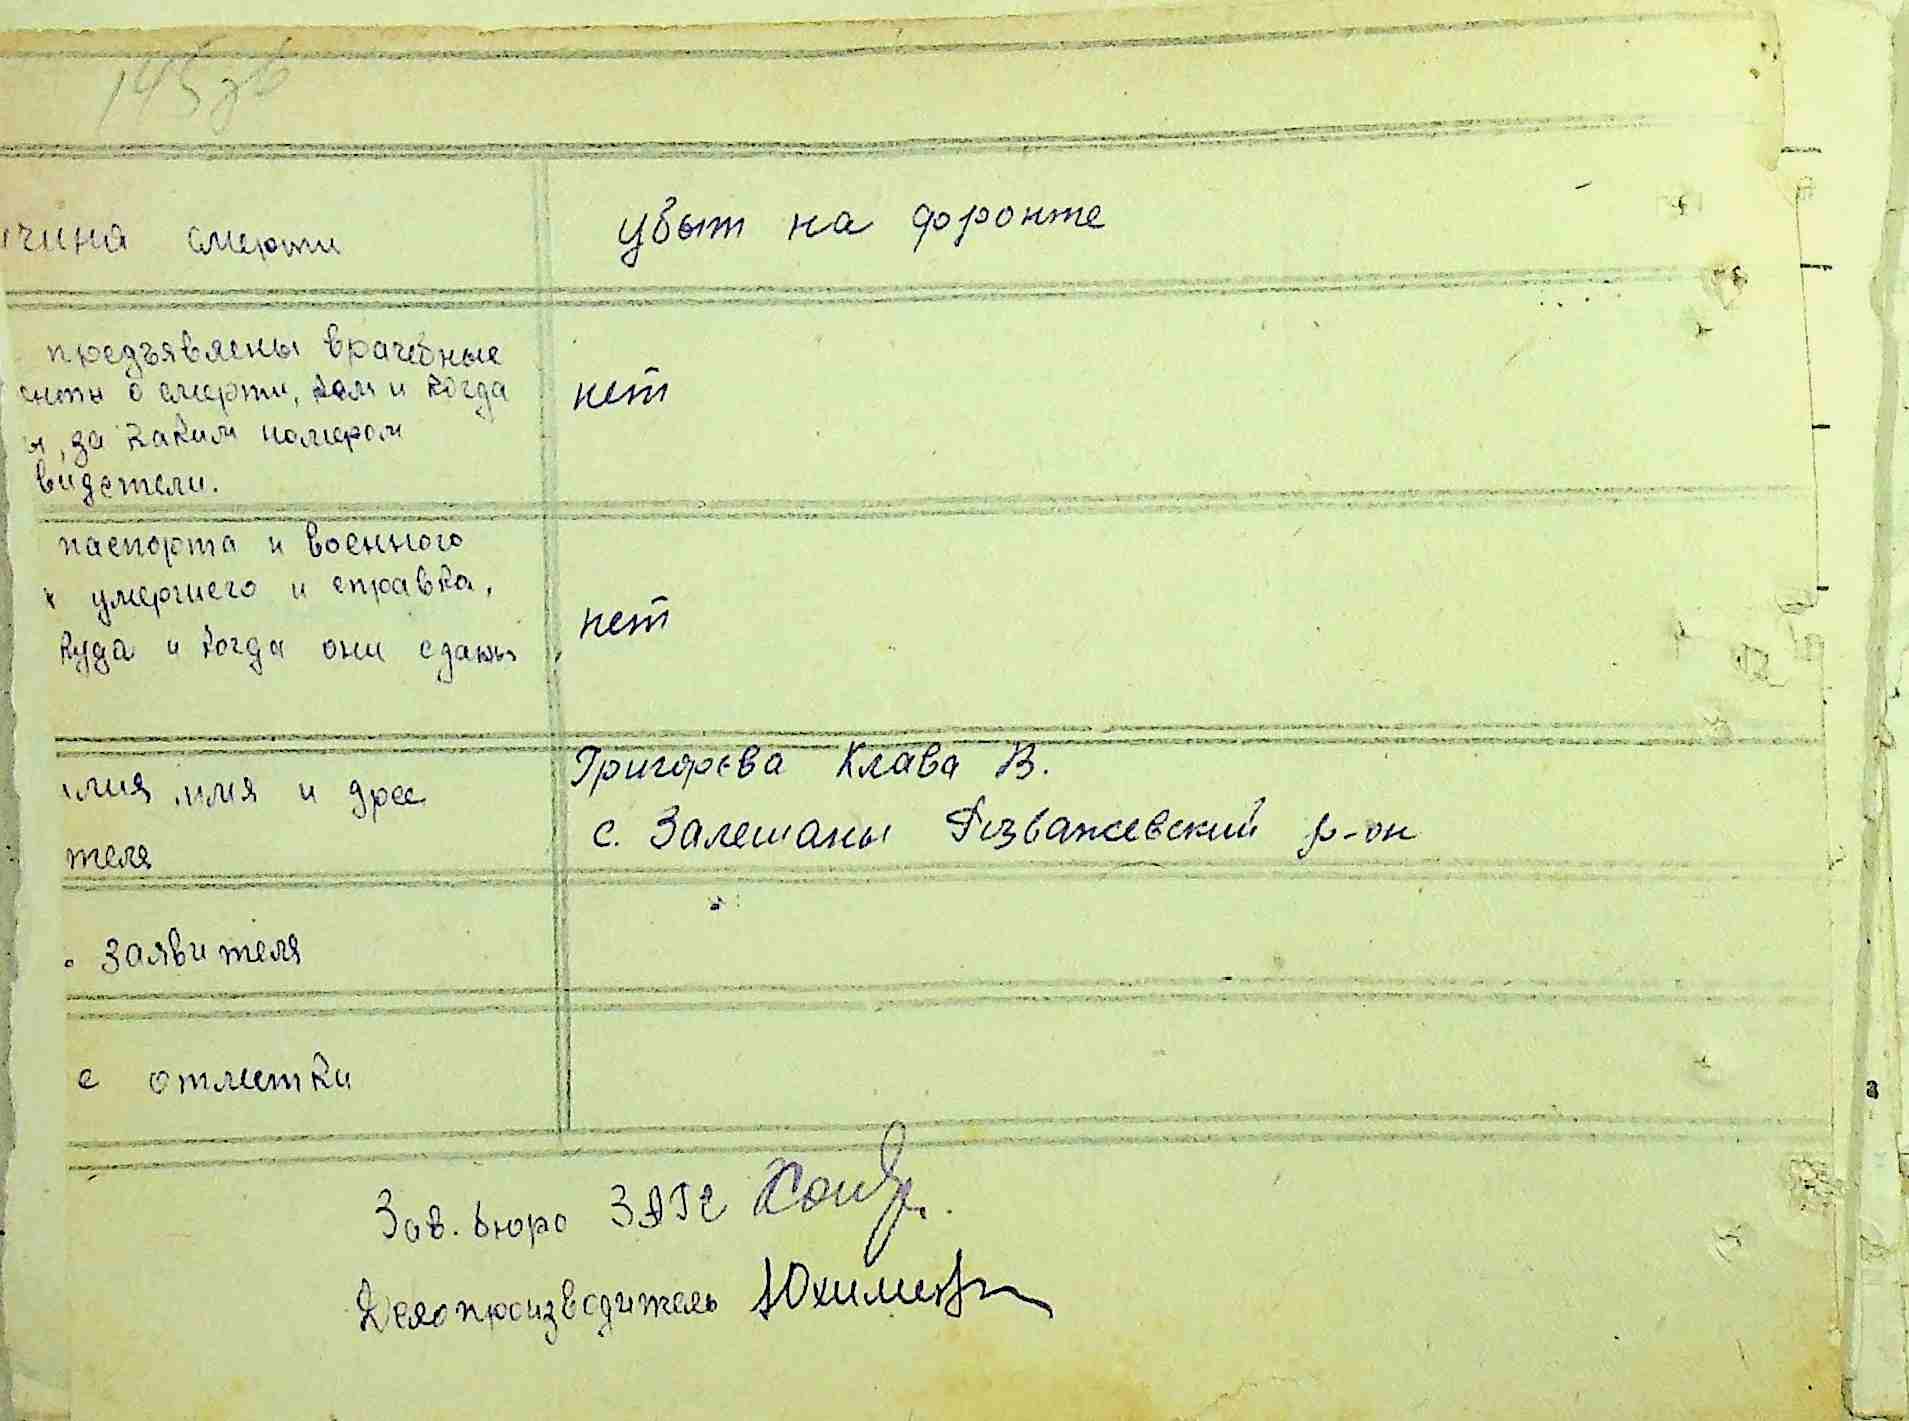 145зв
чина смерти
убыт на форонте
предъявлены врачебные
енты о смерти, кем и когда
ы, за каким номером
видетели.
нет
паспорта и военного
умершего и справка,
куда и когда они сданы
нет
илия имя и дрес
теля
Григорєва Клава В.
с. Залешаны Розважевский р-он
заявителя
е отметки
Зав. бюро ЗАГС
Делопроизводитель